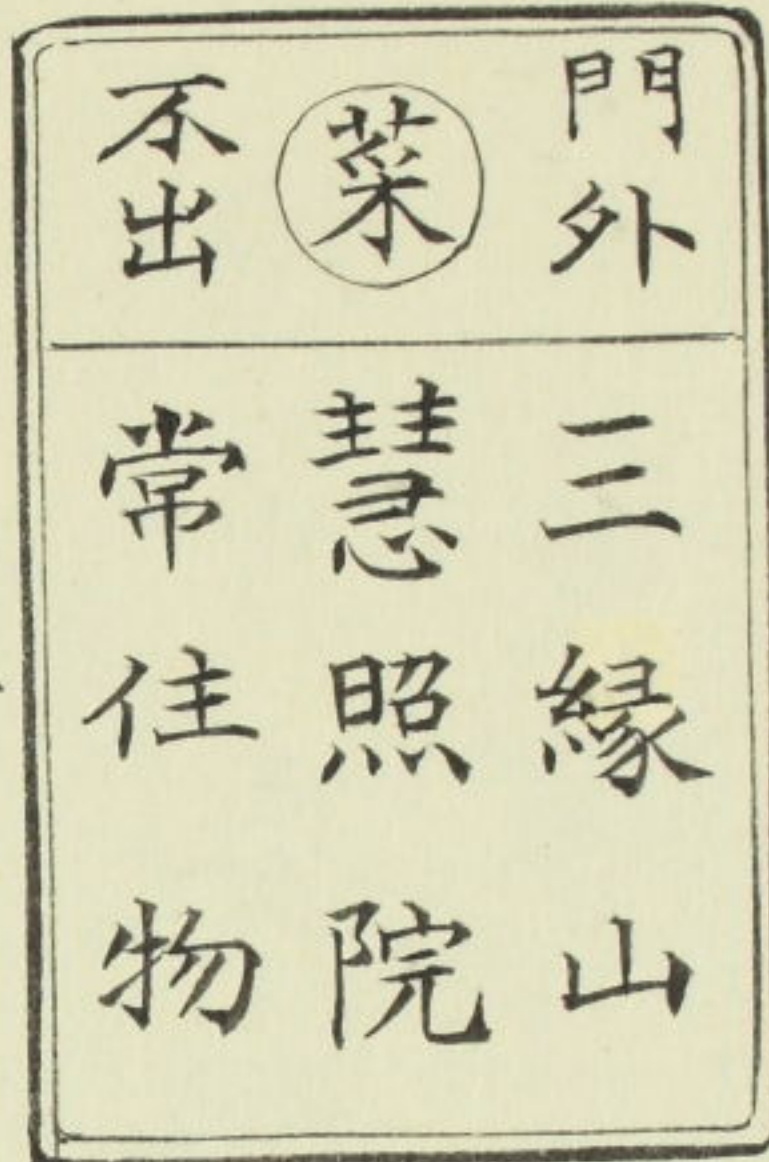 門外
菜
不出
三縁山
慧照院
常住物